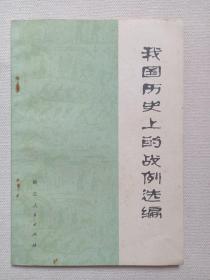 我国历史上的战例选编
浙江人民出版社